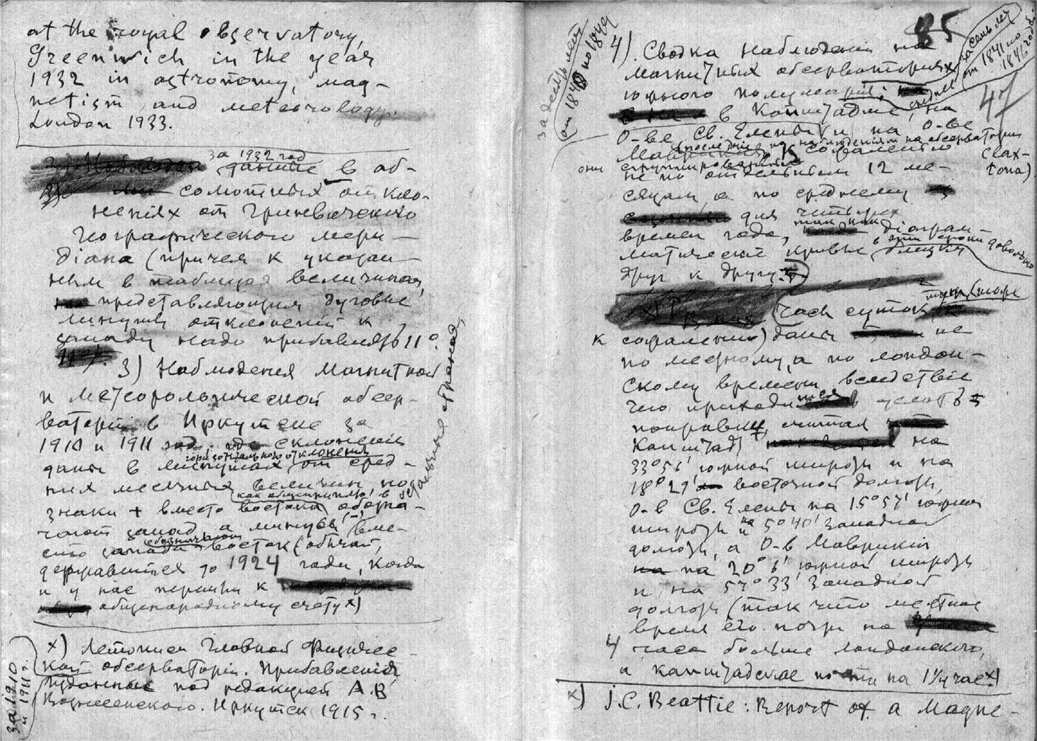 at the royal observatory,
Greenwich in the year
1932 in astronomy, mag-
netism and meteorology.
London 1933.
за 1932 год
данные в аб-
солютных откло-
нениях от Гринвичского
географического мери-
диана (причем к указан-
ным в таблицах величинам,
представляющим дуговые
минуты отклонений к
западу надо прибавлять 11°.
3) Наблюдения Магнитной
и метеорологической обсер-
ватории в Иркутске за
1910 и 1911 год. где склонения
горизонтального отклонения
даны в минутах от сред-
них месячных величин, но
как общепринято в
знаки + вместо востока обозна-
чают запад а минусы (–) вме-
обозначают
сто запада восток (обычай,
державшийся до 1924 года, когда
и у нас перешли к
общенародному счету x)
x) Летопись Главной Физичес-
кой обсерватории. Прибавления
изданные под редакцией А.В
Вознесенского. Иркутск 1915 г.
за 1910
и 1911 г.
85
47
за семь лет
от 1841 по
1846 год
4). Сводка наблюдений на
магнитных обсерваториях
южного полушария:
в Капштадте, на
О-ве Св. Елены и на О-ве
Маврикия к сожалению
они сгруппированы
не по отдельным 12 ме-
сяцам, а по среднему
для четырех
времен года, так как диаграм-
матические кривые в эти сроки довольно
близки
друг к другу.
Часы суток тоже
к сожалению) даны не
по местному, а по лондон-
скому времени, вследствие
чего приходится
поправки, считая
Капштадт на
33°56' южной широты и на
18°29' восточной долготы,
О-в Св. Елены на 15°57' южной
широты и на 5°40' Западной
долготы, а О-в Маврикий
на 20°6' южной широты
и на 57°33' Западной
долготы (так что местное
время его почти на
4 часа больше лондонского,
а капштадтское почти на 1¼ час x)
x) J.C. Beattie: Report of a Magne-